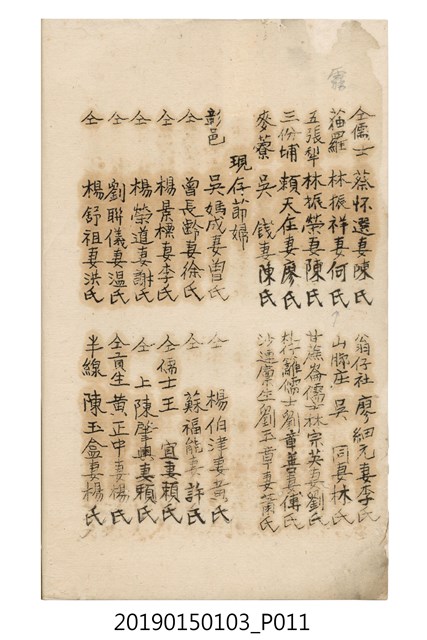 仝儒士 蔡怀選妻陳氏
猫羅 林振祥妻何氏
五張犁 林振榮妻陳氏
三份埔 賴天在妻廖氏
麥藔 吳 錢妻陳氏
現存節婦
彰邑 吳媽成妻曾氏
仝 曾長齡妻徐氏
仝 楊景標妻李氏
仝 楊榮道妻謝氏
仝 劉聯儀妻温氏
仝 楊舒祖妻洪氏
翁仔社 廖細元妻李氏
山腳庄 吳 同妻林氏
甘蔗崙儒士林宗英妻劉氏
杙籬儒士劉章善妻傅氏
沙連廩生劉玉章妻蕭氏
仝 楊伯津妻黃氏
仝 蘇福能妻許氏
仝儒士王 宜妻賴氏
仝 上陳肇興妻賴氏
仝貢生黃正中妻楊氏
半線 陳玉盒妻楊氏
20190150103_P011